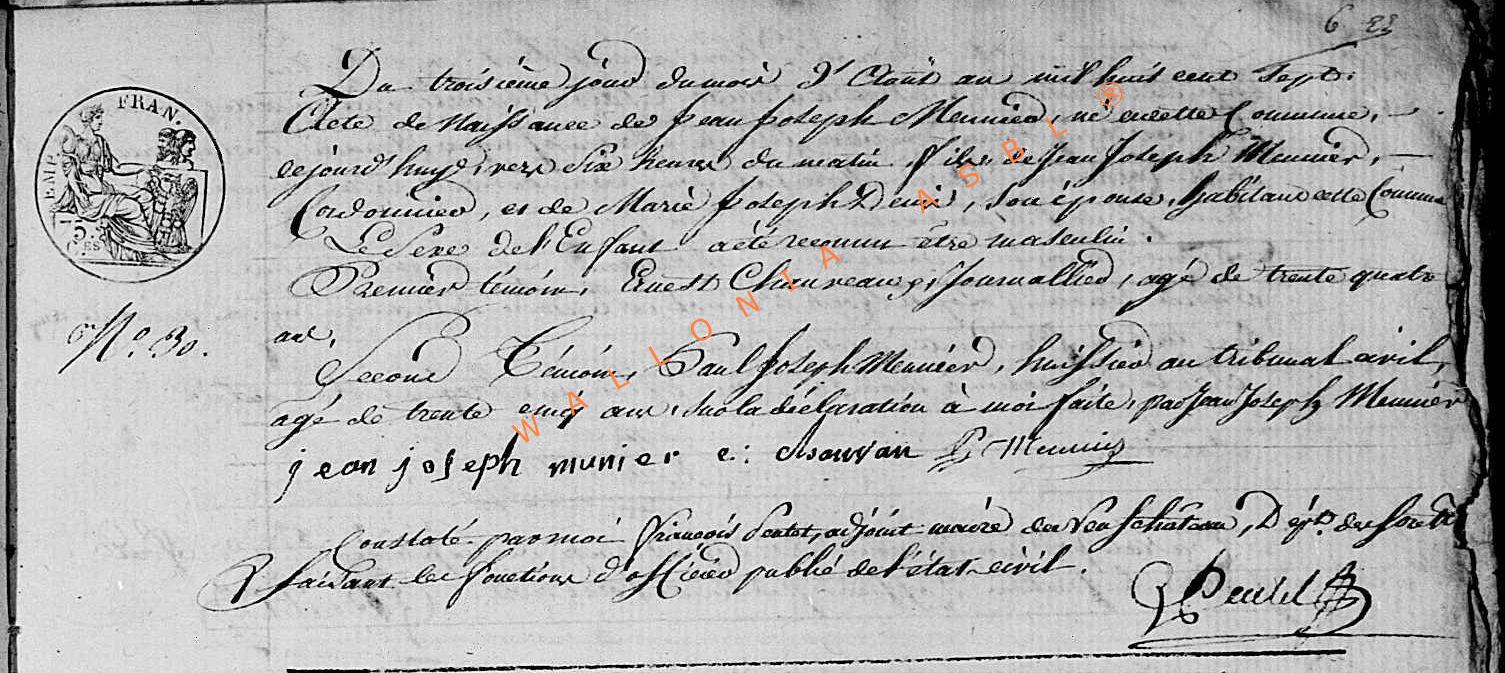 6
FRAN.
EMP.
Du troisième jour du mois d'Août an mil huit cent Sept.
Acte de Naissance de Jean Joseph Meunier, né en cette Commune,
cejourd'huy, vers Six heures du matin, fils de Jean Joseph Meunier,
Cordonnier, et de Marie Joseph Denis, son épouse, habitans cette Commune
Le Sexe de l'Enfant a été reconnu être masculin.
Premier témoin, Ernest Chauveaux, Journallier, agé de trente quatre
ans,
No. 30.
Second Témoin, Paul Joseph Meunier, huissier au tribunal civil,
agé de trente cinq ans, sur la déclaration à moi faite, par Jean Joseph Meunier
jean joseph munier e: chauvau P Meunier
Constaté par moi François adjoint maire de Neufchâteau, Dépt. de forets
faisant les fonctions d'officier public de l'état civil.
WALLONIA ASBL ®